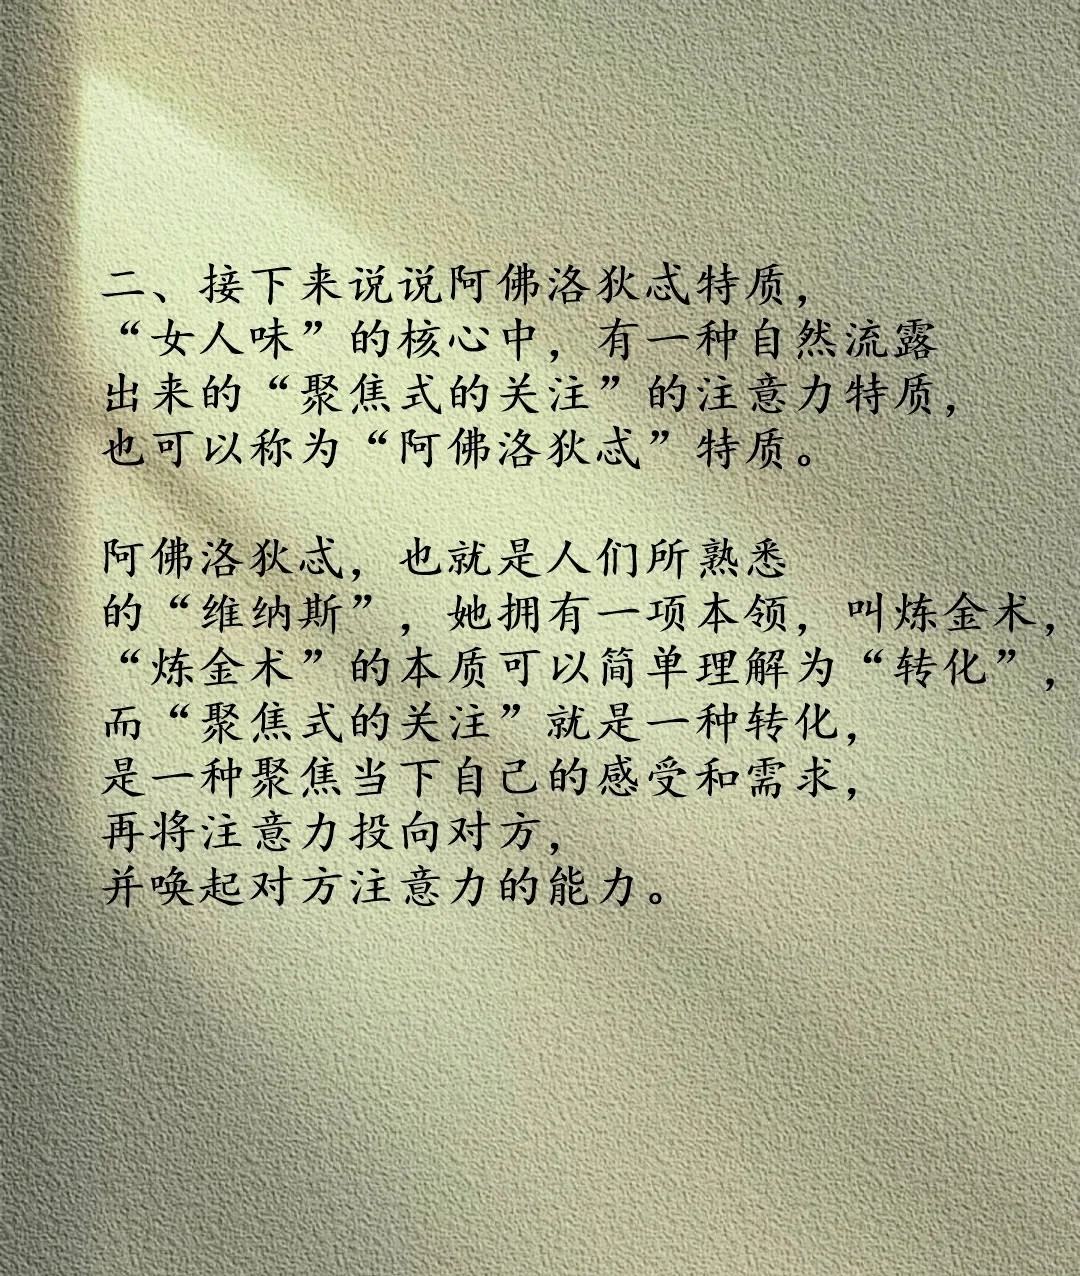 二、接下来说说阿佛洛狄忒特质，
“女人味”的核心中，有一种自然流露
出来的“聚焦式的关注”的注意力特质，
也可以称为“阿佛洛狄忒”特质。
阿佛洛狄忒，也就是人们所熟悉
的“维纳斯”，她拥有一项本领，叫炼金术，
“炼金术”的本质可以简单理解为“转化”，
而“聚焦式的关注”就是一种转化，
是一种聚焦当下自己的感受和需求，
再将注意力投向对方，
并唤起对方注意力的能力。